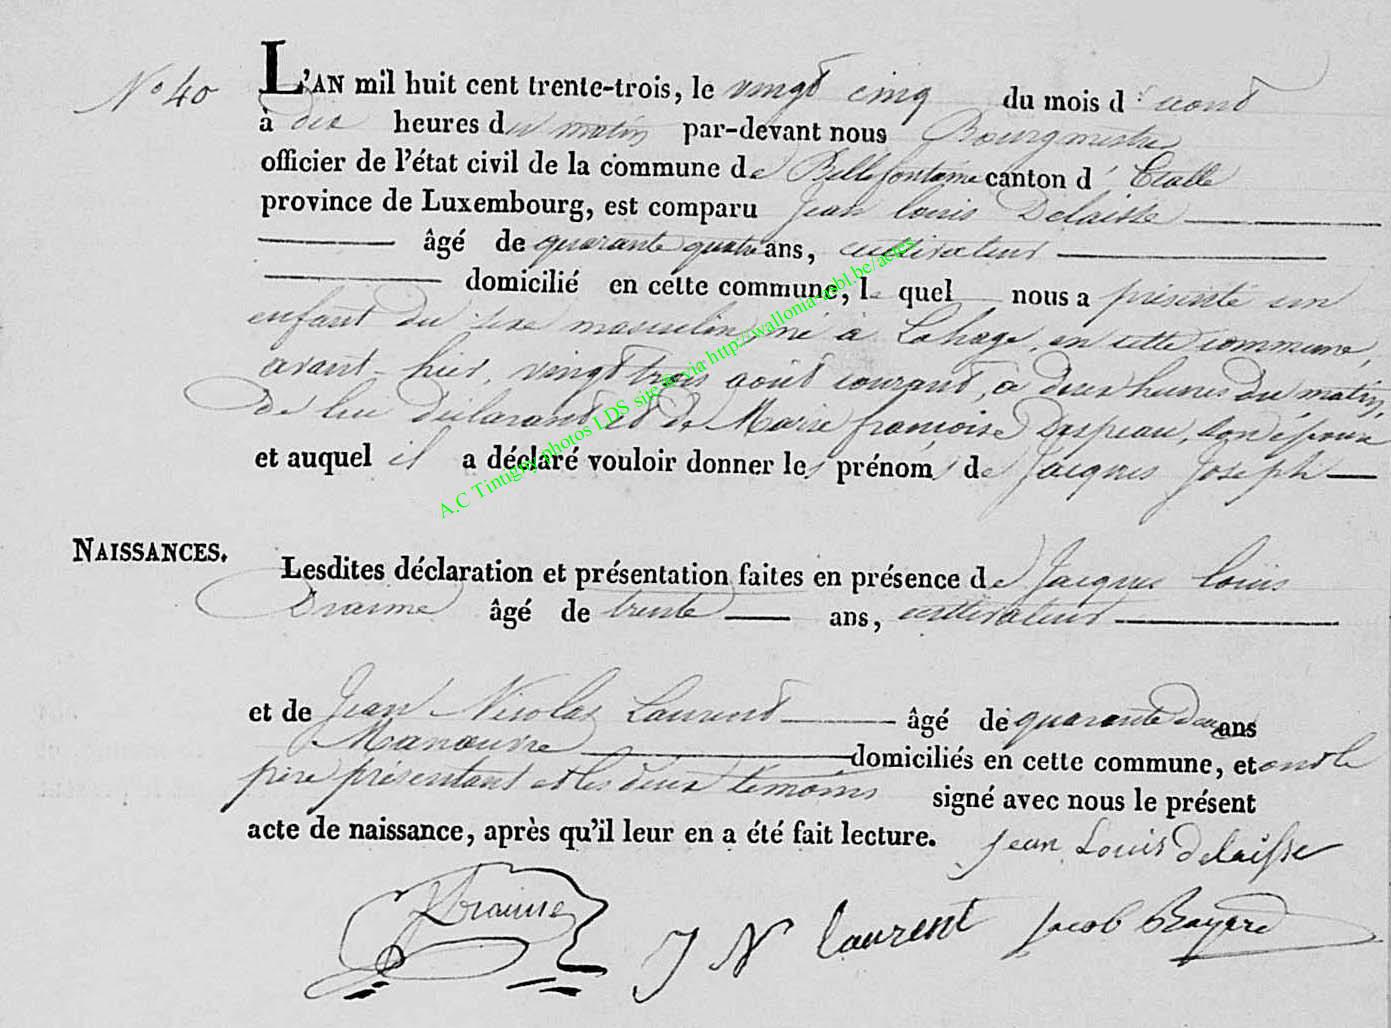 N° 40
L'AN mil huit cent trente-trois, le vingt cinq du mois d' aout
à dix heures du matin par-devant nous Bourgmestre
officier de l'état civil de la commune de Bellefontaine canton d' Etalle
province de Luxembourg, est comparu Jean Louis Delaisse
âgé de quarante quatre ans, cultivateur
domicilié en cette commune, le quel nous a présenté un
enfant du sexe masculin, né à Lahage, en cette commune,
avant-hier, vingt trois août courant, à deux heures du matin,
de lui déclarant et de Marie françoise Despeau, son épouse
et auquel il a déclaré vouloir donner les prénoms de Jacques Joseph
NAISSANCES.
Lesdites déclaration et présentation faites en présence de Jacques Louis
âgé de trente ans, cultivateur
et de Jean Nicolas Laurent âgé de quarante deux ans
Manouvre domiciliés en cette commune, et ont le
père présentant et les deux témoins signé avec nous le présent
acte de naissance, après qu'il leur en a été fait lecture.
Jean Louis delaisse
J N laurent
Jacob Bayard
A.C Tintigny photos LDS site & via http://wallonia-asbl.be/actes